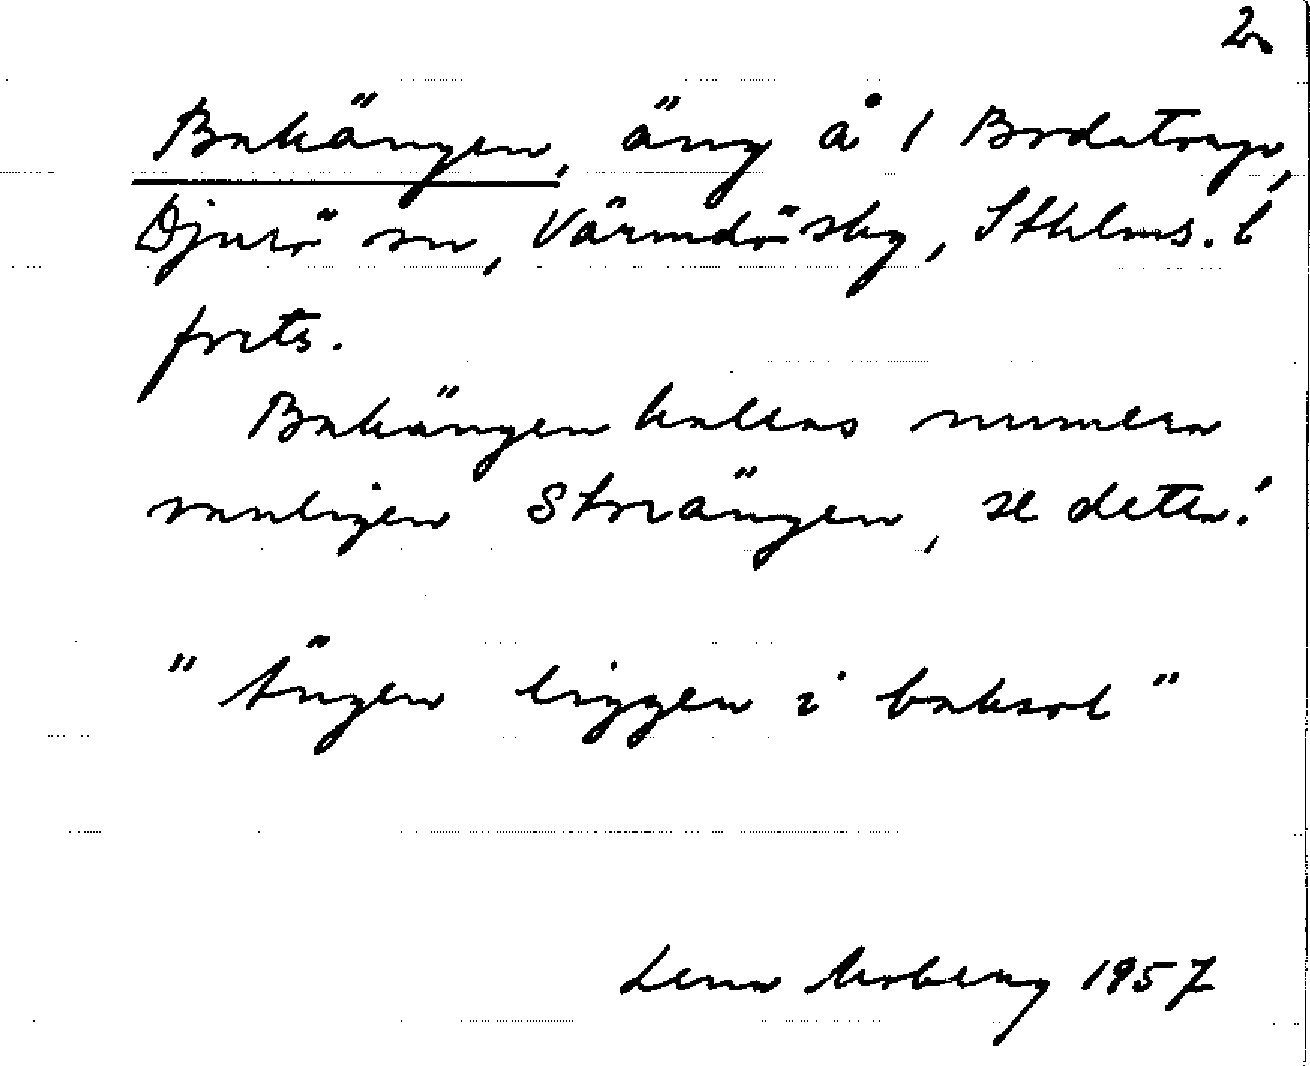 2
Bakängen, äng å 1 Bodatorp,
Djurö sn, Värmdö skg, Sthlms. l
forts.
Bakängen kallas numera
vanligen Storängen, se detta!
"Ängen ligger i baksol"
Lena Moberg 1957